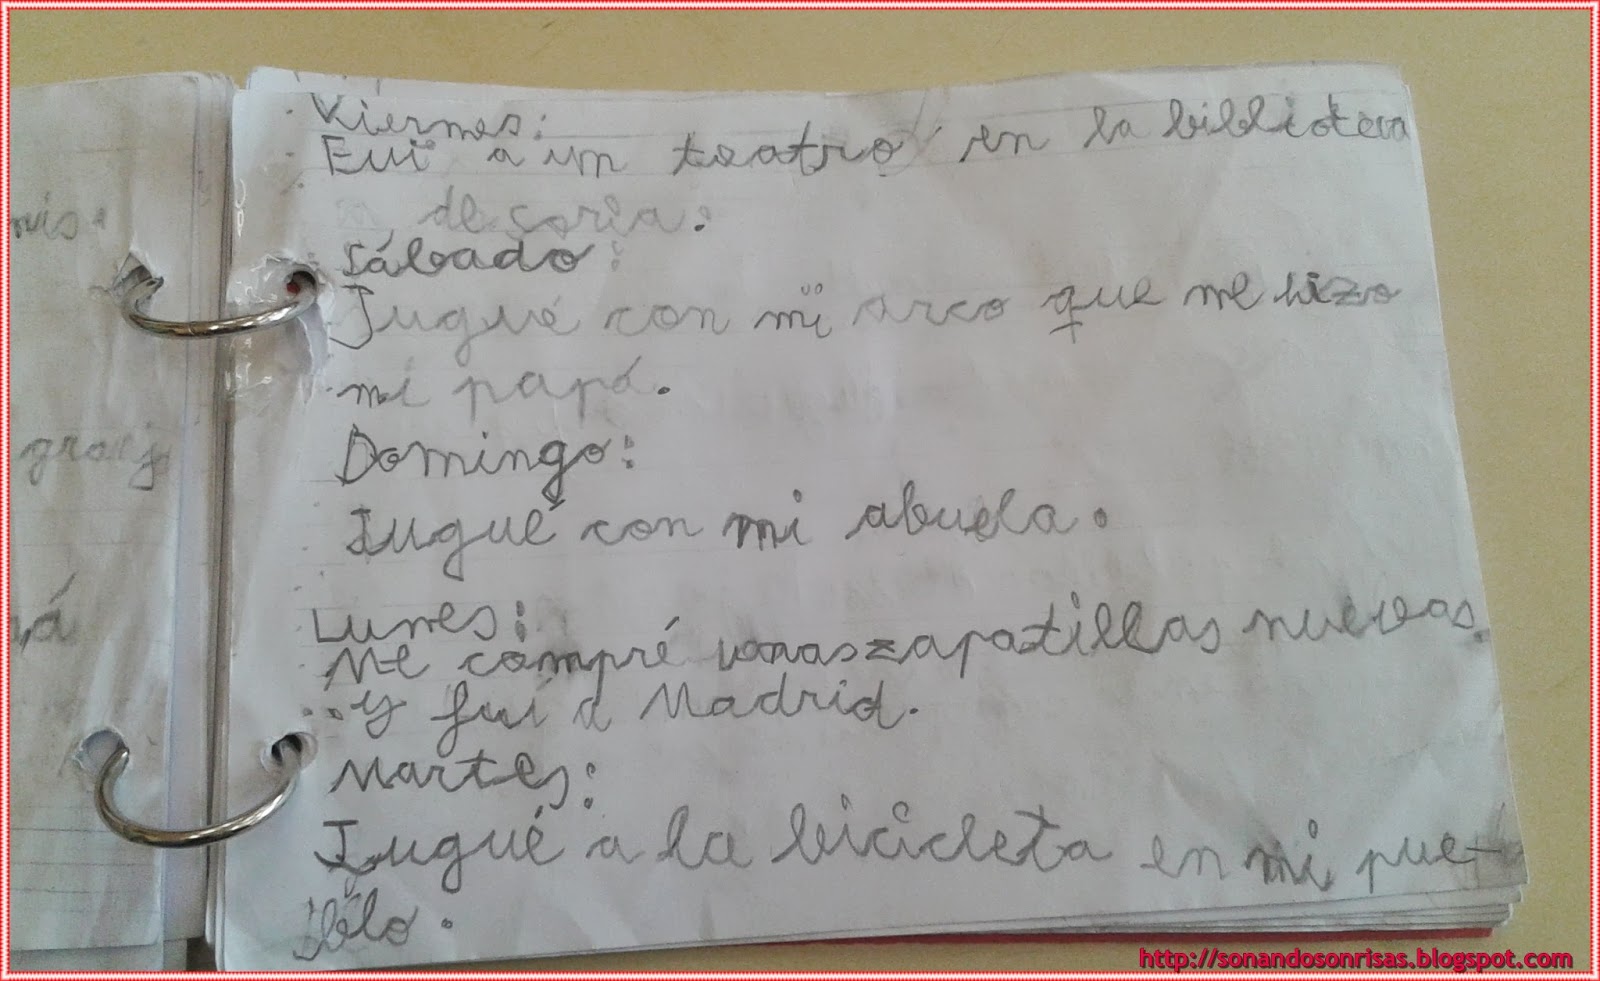 Viernes:
Fui a un teatro en la biblioteca
de soria.
Sábado:
Jugué con mi arco que me hizo
mi papá.
Domingo:
Jugué con mi abuela.
Lunes:
Me compré unas zapatillas nuevas.
y fui a Madrid.
Martes:
Jugué a la bicicleta en mi pue-
blo.
http://sonandosonrisas.blogspot.com